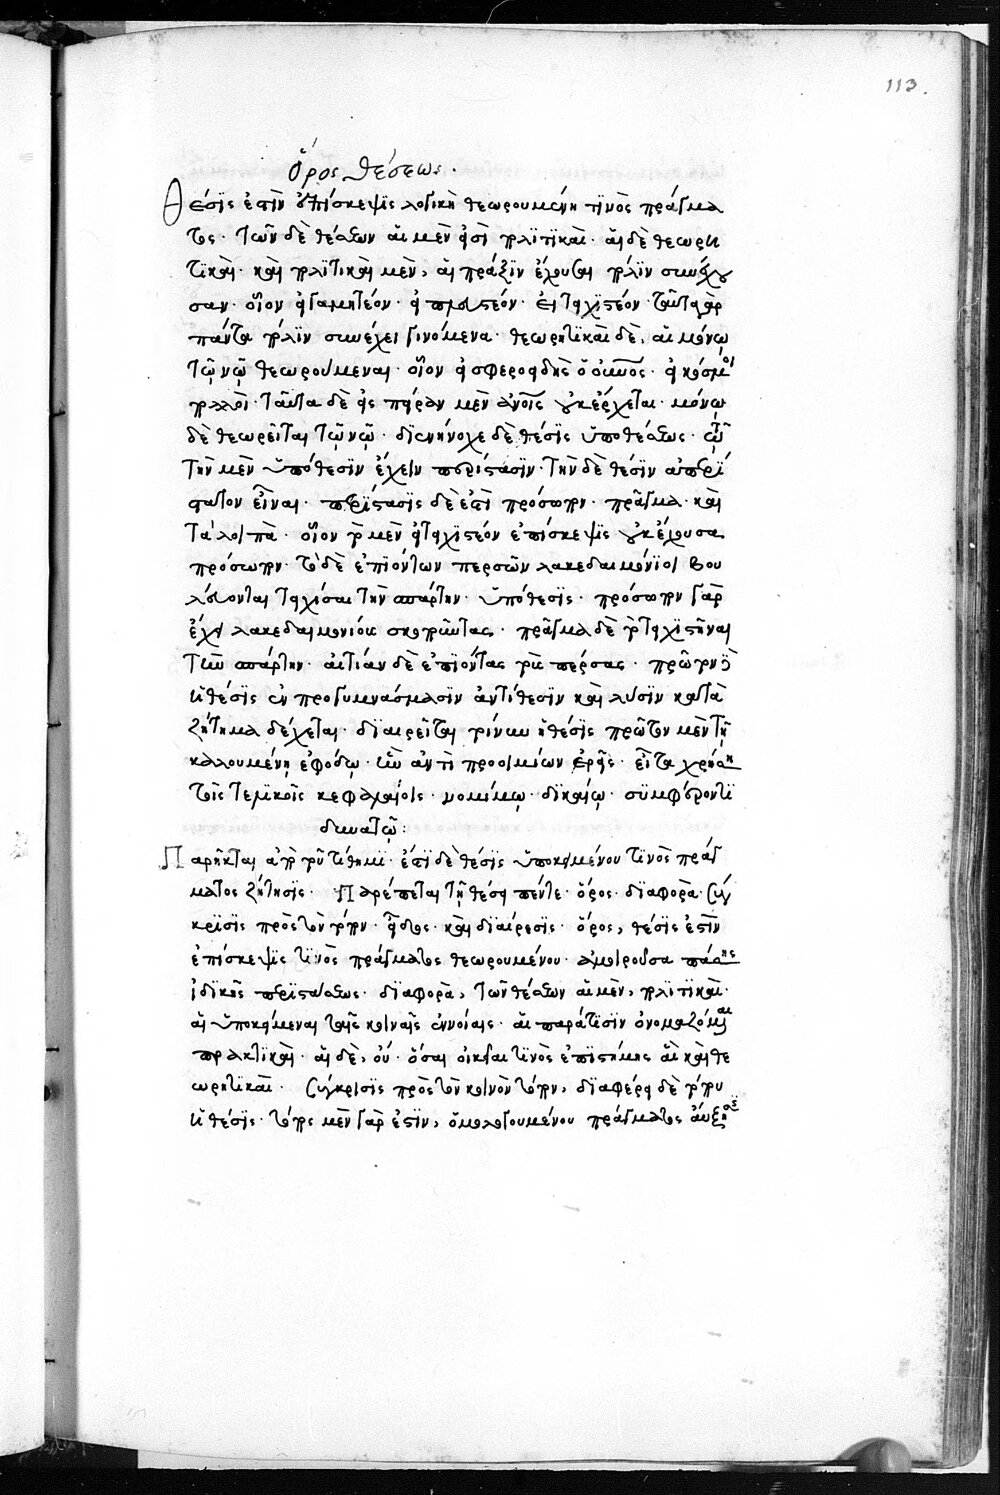 113.
ὅρος θέσεως.
Θέσις ἐστὶν ἐπίσκεψις λογικὴ θεωρουμένη τινὸς πράγμα
τος. τῶν δὲ θέσεων αἱ μέν εἰσι πολιτικαὶ. αἱ δὲ θεωρη
τικαὶ. καὶ πολιτικαὶ μὲν, αἱ πρᾶξιν ἔχουσαι πόλιν συνέχου
σαν. οἷον εἰ γαμητέον. εἰ πλευστέον. εἰ τειχιστέον. ταῦτα γὰρ
πάντα πόλιν συνέχει γινόμενα. θεωρητικαὶ δὲ, αἱ μόνῳ
τῷ νῷ θεωρούμεναι. οἷον εἰ σφεροειδὴς ὁ οὐνος. εἰ κόσμοι
πολλοὶ. ταῦτα δὲ εἰς πεῖραν μὲν ἀνοις οὐκ ἔρχεται. μόνῳ
δὲ θεωρεῖται τῷ νῷ. διενήνοχε δὲ θέσις ὑποθέσεως. τῷ
τὴν μὲν ὑπόθεσιν ἔχειν περίστασιν. τὴν δὲ θέσιν ἀπερί
στατον εἶναι. περίστασις δὲ ἐστὶ πρόσωπον. πρᾶγμα. καὶ
τὰ λοιπὰ. οἷον τὸ μὲν εἰ τειχιστέον ἐπίσκεψις οὐκ ἔχουσα
πρόσωπον. τὸ δὲ ἐπιόντων περσῶν λακεδαιμόνιοι βου
λεύονται τειχίσαι τὴν σπάρτην. ὑπόθεσις. πρόσωπον γὰρ
ἔχει λακεδαιμονίους σκοποῦντας. πρᾶγμα δὲ τὸ τειχισθῆναι
τὴν σπάρτην. αἰτίαν δὲ ἐπιόντας τοὺς πέρσας. πρῶτον δὲ
ἡ θέσις ἐν προγυμνάσμασιν ἀντίθεσιν καὶ λύσιν κατὰ
ζήτημα δέχεται. διαιρεῖται τοίνυν ἡ θέσις πρῶτον μὲν τῇ
καλουμένῃ ἐφόδῳ. ἣν ἀντὶ προοιμίων ἐρεῖς. εἶτα χρήση
τοῖς τελικοῖς κεφαλαίοις. νομίμῳ. δικαίῳ. συμφέροντι
δυνατῷ:
Παρῆκται ἀπὸ τοῦ τίθημι. ἐστὶ δὲ θέσις ὑποκειμένου τινὸς πράγ
ματος ζήτησις. Παρέπεται τῇ θέσει πέντε. ὅρος. διαφορὰ. σύγ
κρισις πρὸς τὸν τόπον. εἶδος. καὶ διαίρεσις. ὅρος, θέσις ἐστὶν
ἐπίσκεψις τινὸς πράγματος θεωρουμένου. ἀμοιροῦσα πάσης
ἰδικῆς περιστάσεως. διαφορὰ, τῶν θέσεων αἱ μὲν, πολιτικαὶ.
αἱ ὑποκείμεναι ταῖς κοιναῖς ἐννοίαις. αἱ παρά τισιν ὀνομαζόμεναι
πρακτικαὶ. αἱ δὲ, οὔ. ὅσαι οἰκεῖαι τινὸς ἐπιστήμης αἱ καὶ θε
ωρητικαὶ. σύγκρισις πρὸς τὸν κοινὸν τόπον, διαφέρει δὲ τόπου
ἡ θέσις. τόπος μὲν γάρ ἐστιν, ὁμολογουμένου πράγματος αὔξησις